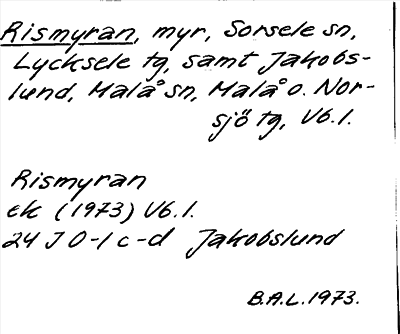 Rismyran, myr, Sorsele sn,
Lycksele tg, samt Jakobs-
lund, Malå sn, Malå o. Nor-
sjö tg, Vb.l.
Rismyran
ek (1973) Vb.l.
24 J 0-1 c-d Jakobslund
B.A.L. 1973.